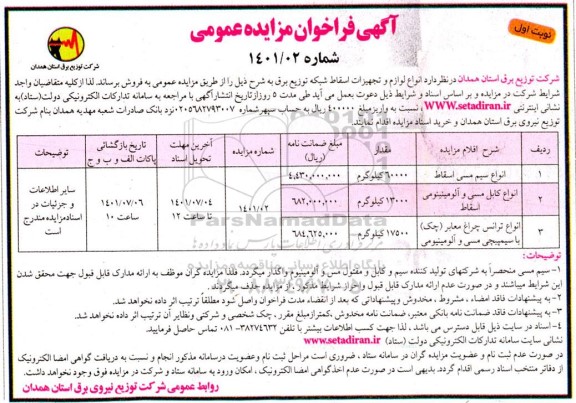 نوبت اول
آگهی فراخوان مزایده عمومی
شماره ۱۴۰۱/۰۲
شرکت توزیع برق استان همدان
شرکت توزیع برق استان همدان در نظر دارد انواع لوازم و تجهیزات اسقاط شبکه توزیع برق به شرح ذیل را از طریق مزایده عمومی به فروش برساند. لذا از کلیه متقاضیان واجد
شرایط شرکت در مزایده و بر اساس اسناد و شرایط ذیل دعوت بعمل می آید طی مدت ۵ روز از تاریخ انتشار آگهی با مراجعه به سامانه تدارکات الکترونیکی دولت (ستاد) به
نشانی اینترنتی WWW.setadiran.ir ، نسبت به واریز مبلغ ۴۰۰۰۰۰ ریال به حساب سپهر شماره ۰۲۰۵۶۸۲۷۹۳۰۰۷ نزد بانک صادرات شعبه مهدیه همدان بنام شرکت
توزیع نیروی برق استان همدان و خرید اسناد مزایده اقدام نمایند.
ردیف شرح اقلام مزایده مقدار مبلغ ضمانت نامه (ریال) شماره مزایده آخرین مهلت تحویل اسناد تاریخ بازگشائی پاکات الف و ب و ج توضیحات
۱ انواع سیم مسی اسقاط ۶۰۰۰۰ کیلوگرم ۴,۴۳۰,۰۰۰,۰۰۰ ۱۴۰۱/۰۲ ۱۴۰۱/۰۷/۰۴ تا ساعت ۱۲ ۱۴۰۱/۰۷/۰۶ ساعت ۱۰ سایر اطلاعات و جزئیات در اسناد مزایده مندرج است
۲ انواع کابل مسی و آلومینیومی اسقاط ۱۳۰۰۰ کیلوگرم ۶۸۲,۰۰۰,۰۰۰
۳ انواع ترانس چراغ معابر (چک) با سیم‌پیچی مسی و آلومینیومی ۱۷۵۰۰ کیلوگرم ۶۸۴,۶۲۵,۰۰۰
توضیحات:
۱- سیم مسی منحصراً به شرکتهای تولید کننده سیم و کابل و مفتول مس و آلومینیوم واگذار میگردد. فلذا مزایده گران موظف به ارائه مدارک قابل قبول جهت محقق شدن
این شرایط میباشند و در صورت عدم ارائه مدارک قابل قبول و احراز شرایط مذکور، از مزایده حذف میگردند.
۲- به پیشنهادات فاقد امضاء ، مشروط ، مخدوش و پیشنهاداتی که بعد از انقضاء مدت فراخوان واصل شود مطلقاً ترتیب اثر داده نخواهد شد.
۳- به پیشنهادات فاقد ضمانت نامه بانکی معتبر، ضمانت نامه مخدوش ،کمتر از مبلغ مقرر ، چک شخصی و شرکتی و نظایر آن ترتیب اثر داده نخواهد شد.
۴- اسناد در سایت ذیل قابل دسترس می باشد ، لذا جهت کسب اطلاعات بیشتر با تلفن ۳۸۲۷۴۶۳۲-۰۸۱ تماس حاصل فرمایید.
نشانی سایت سامانه تدارکات الکترونیکی دولت (ستاد) www.setadiran.ir
در صورت عدم ثبت نام و عضویت مزایده گران در سامانه ستاد ، ضروری است مراحل ثبت نام و عضویت در سامانه مذکور انجام و نسبت به دریافت گواهی امضا الکترونیک
از دفاتر منتخب اسناد رسمی اقدام گردد. بدیهی است در صورت عدم اخذ گواهی امضا الکترونیک ، امکان ورود به سامانه ستاد و شرکت در مزایده فوق وجود نخواهد داشت.
روابط عمومی شرکت توزیع نیروی برق استان همدان